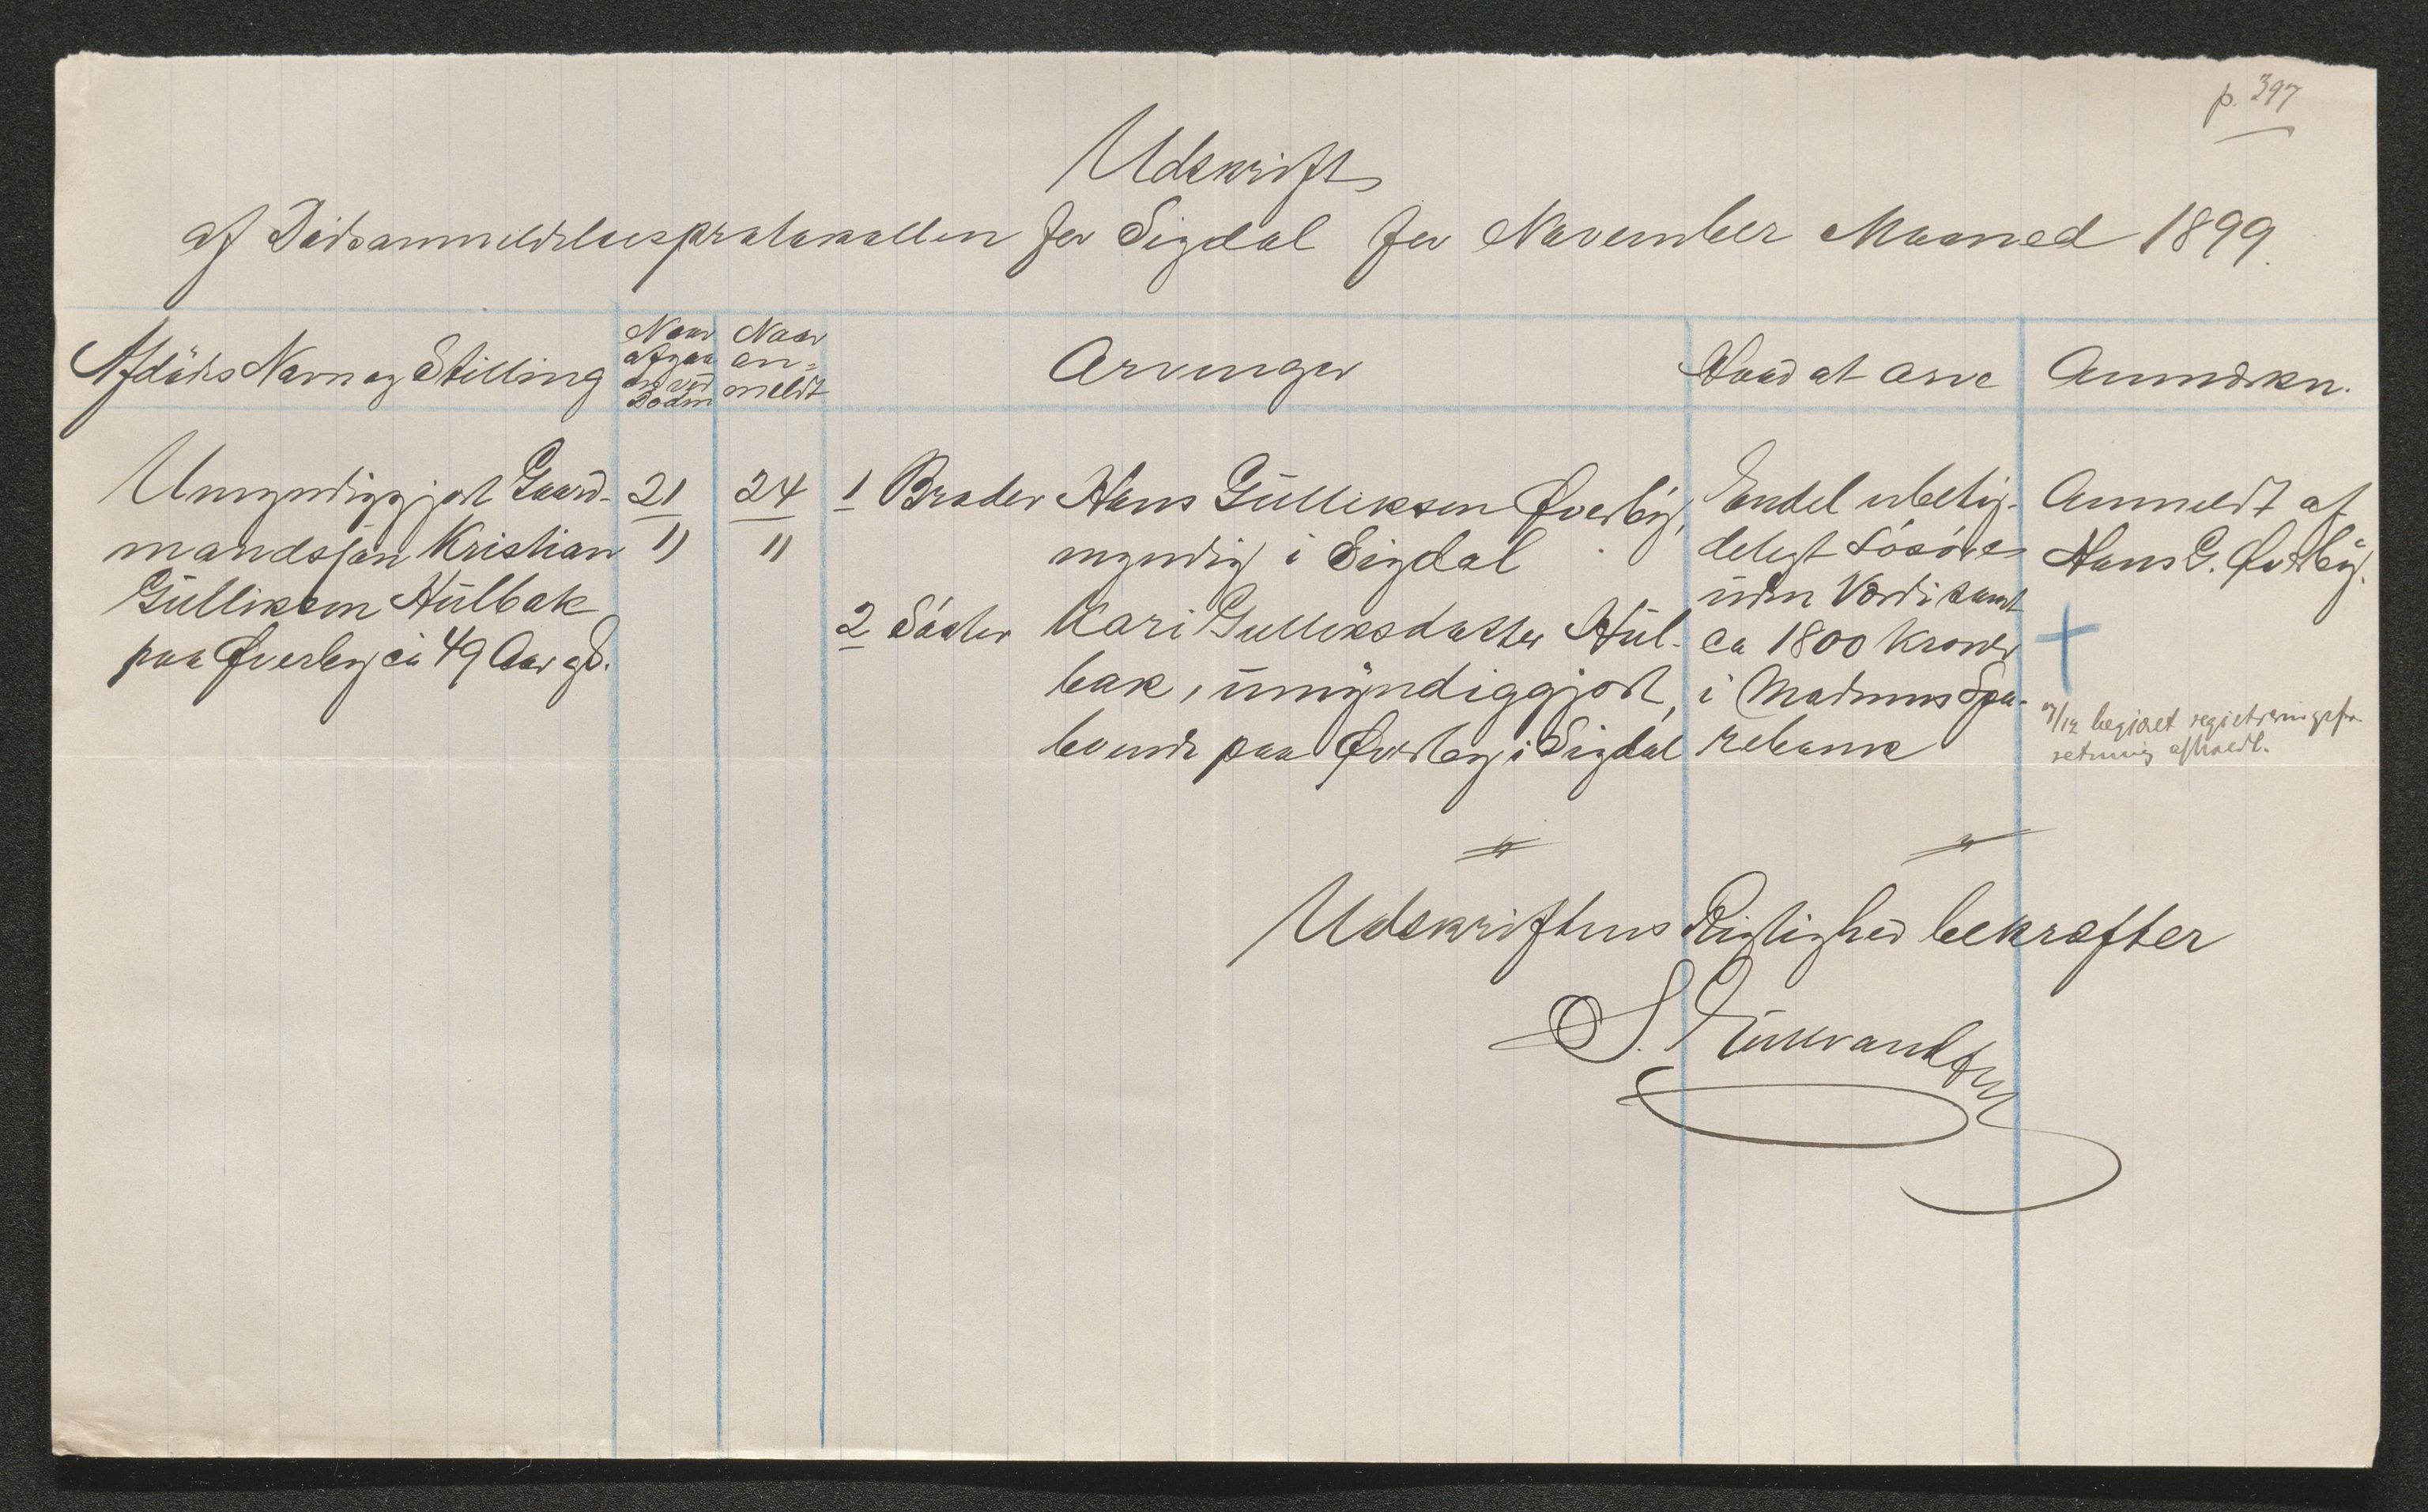 p. 397
Udskrift
af Dödsanmeldelsesprotokollen for Sigdal for November Maaned 1899.
Afdödes Navn og Stilling
Naar
afgaa
en ved
Döden
Naar
an-
meldt
Arvinger
Hvad at arve
Anmærkn.
Umyndiggjort Gaard-
mandssön Kristian
Gulliksen Hulbak
paa Øverby ca 49 Aar gl.
21
11
24
11
1 Broder Hans Gulliksen Øverby,
myndig i Sigdal
2 Söster Kari Gulliksdatter Hul-
bak, umyndiggjort,
boende paa Øverby i Sigdal
Endel ubetÿ-
deligt Lösöre
uden Værdi samt
ca 1800 Kroner
i Modums Spa-
rebank
Anmeldt af
Hans G. Øverby.
/12 begjæret registreringsfor
retning afholdt.
Udskriftens Rigtighed bekræfter
S.